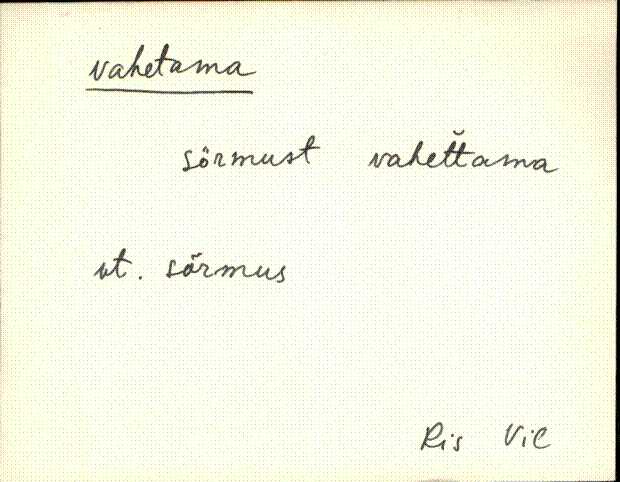 vahetama
sõrmust vahet̆tama
vt. sõrmus
Ris Vil